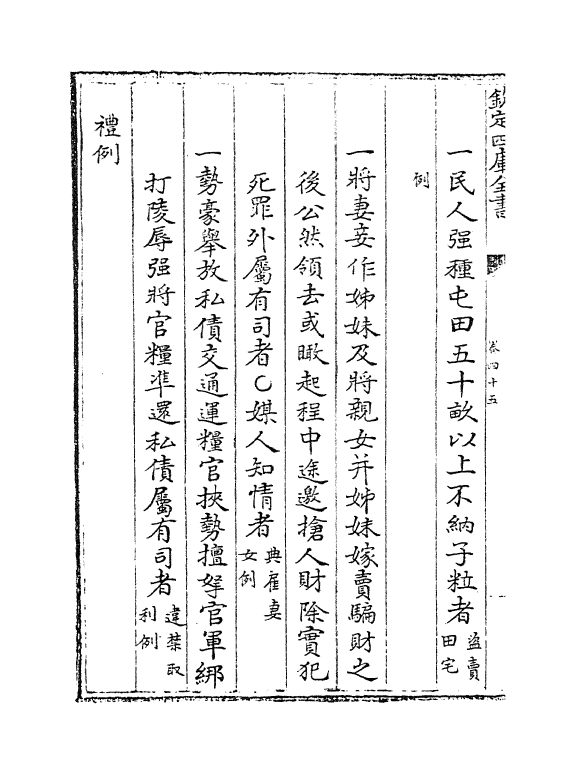 欽定四庫全書
卷四十五
一民人强種屯田五十畝以上不納子粒者盜賣田宅
例
一將妻妾作姊妹及將親女并姊妹嫁賣騙財之
後公然領去或瞰起程中途邀搶人財除實犯
死罪外屬有司者〇媒人知情者典雇妻女例
一勢豪舉放私債交通運糧官挾勢擅拏官軍綁
打陵辱强將官糧準還私債屬有司者違禁取利例
禮例